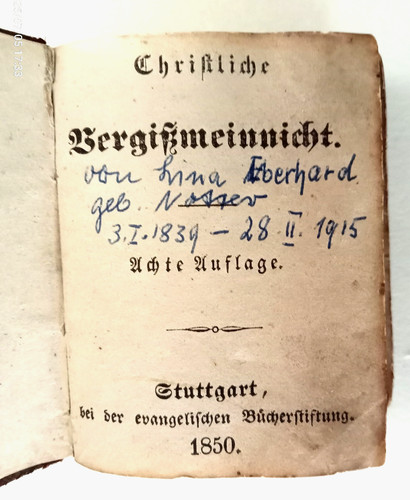 Christliche
Vergißmeinnicht.
von Lina Eberhard
geb.
3.I.1839 – 28 II. 1915
Achte Auflage.
Stuttgart,
bei der evangelischen Bücherstiftung.
1850.